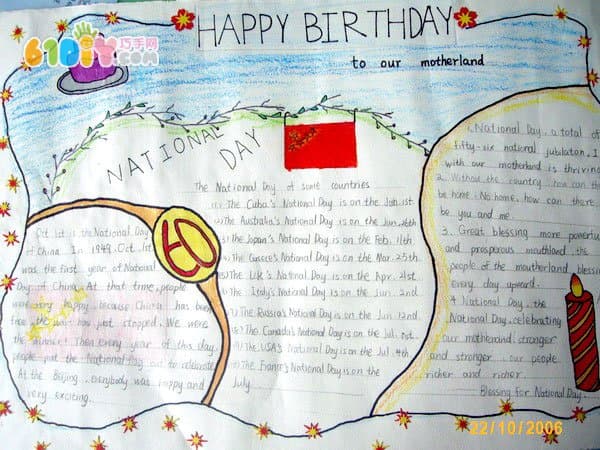 61DIY巧手网
.com
HAPPY BIRTHDAY
to our motherland
NATIONAL DAY
60
Oct 1st is the National Day
of China In 1949. Oct 1st
was the first year of National
Day of China. At that time, people
were very happy because China has been
free the war has just stopped. We were
the winner! Then every year of this day
people put the National Day out to celebrate
At the Beijing, everybody was happy and
very exciting.
The National Day of some countries
The Cuba's National Day is on the Jan. 1st
The Australia's National Day is on the Jan. 26th
The Japan's National Day is on the Feb. 11th
The Greece's National Day is on the Mar. 25th
The U.K's National Day is on the Apr. 21st
The Italy's National Day is on the Jun. 2nd
The Russia's National Day is on the Jun. 12nd
The Canada's National Day is on the Jul. 1st
The USA's National Day is on the Jul. 4th
The France's National Day is on the
July
1. National Day, a total of
fifty-six national jubilation, I
with our motherland is thriving
2. Without the country how can the
be home. No home, how can there
be you and me.
3. Great blessing more powerful
and prosperous mouthland. the
people of the moutherland blessing
every day upward.
4 National Day, the
National Day. celebrating
our motherland stronger
and stronger, our people
richer and richer.
Blessing for National Day.
22/10/2006